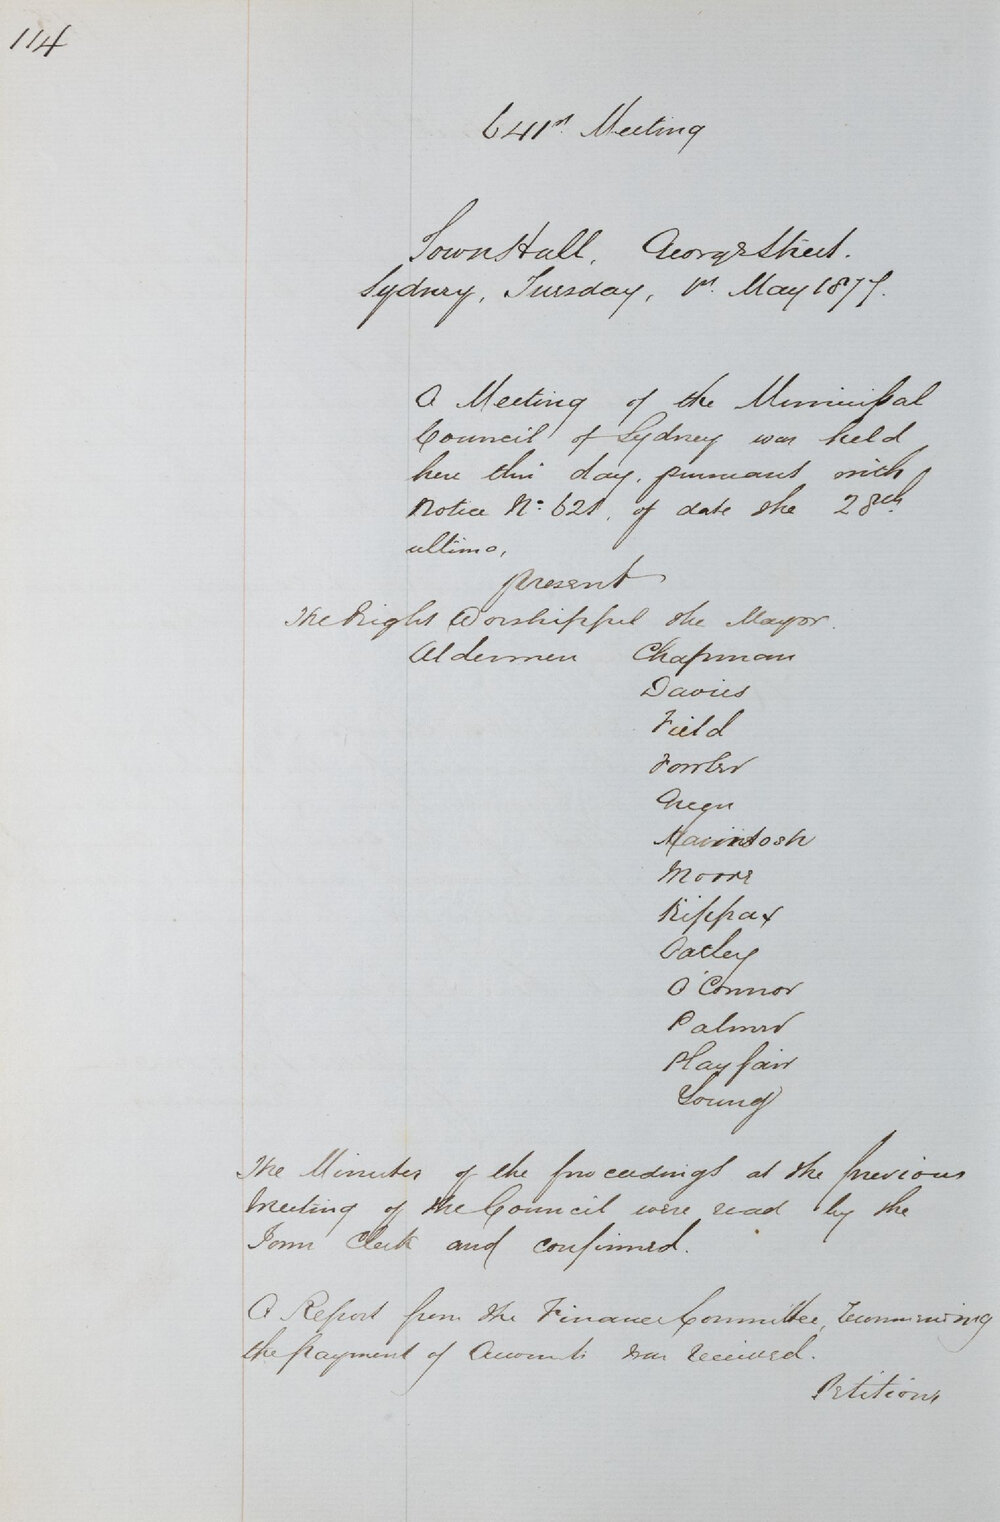 114
641st Meeting
Town Hall, George Street.
Sydney, Tuesday, 1st May 1877.
A Meeting of the Municipal
Council of Sydney was held
here this day, pursuant with
Notice No: 621, of date the 28th
ultimo,
present
The Right Worshippful the Mayor.
Aldermen Chapman
Davies
Field
Fowler
Green
Macintosh
Moore
Kippax
Oatley
O'Connor
Palmer
Playfair
Young
The Minutes of the proceedings at the previous
Meeting of the Council were read by the
Town Clerk and confirmed.
A Report from the Finance Committee,
the payment of Accounts was received.
Petitions